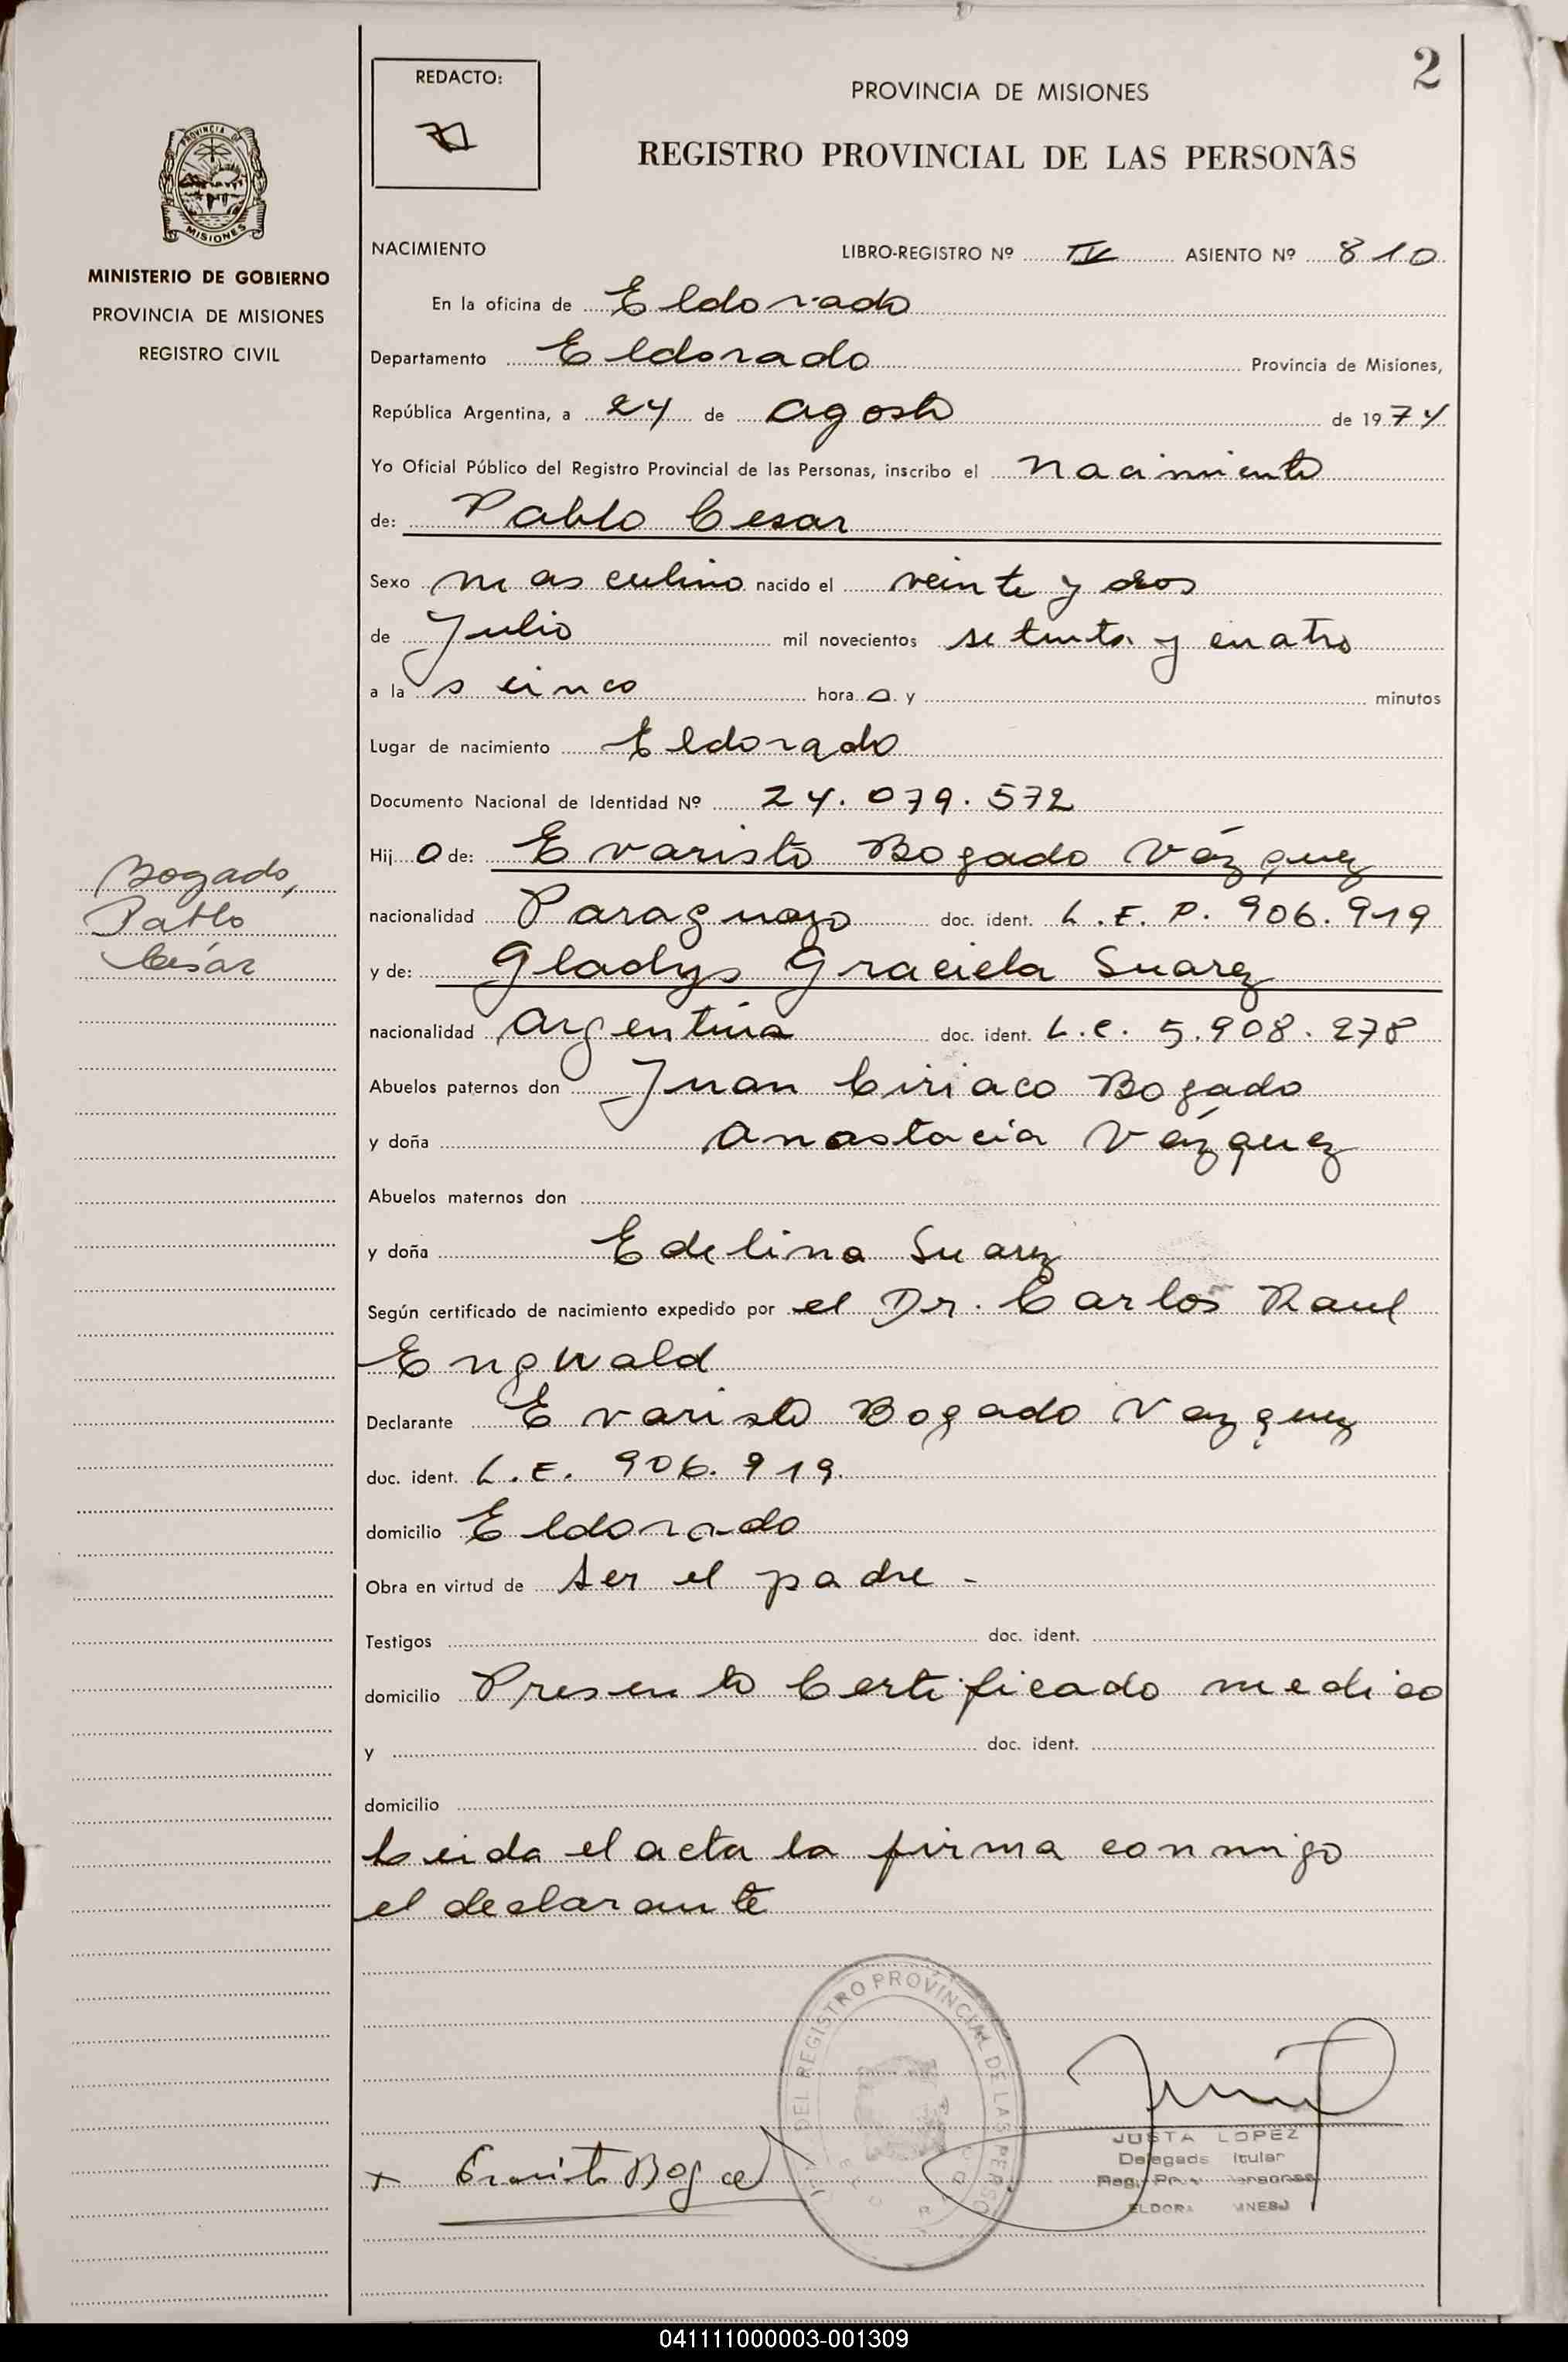 2
REDACTO:
PROVINCIA DE MISIONES
REGISTRO PROVINCIAL DE LAS PERSONAS
PROVINCIA DE
MISIONES
MINISTERIO DE GOBIERNO
PROVINCIA DE MISIONES
REGISTRO CIVIL
Bogado,
Pablo
César
NACIMIENTO LIBRO-REGISTRO Nº IV ASIENTO Nº 810
En la oficina de Eldorado
Departamento Eldorado Provincia de Misiones,
República Argentina, a 24 de agosto de 1974
Yo Oficial Público del Registro Provincial de las Personas, inscribo el nacimiento
de: Pablo Cesar
Sexo masculino nacido el veinte y dos
de Julio mil novecientos setenta y cuatro
a las cinco hora s y minutos
Lugar de nacimiento Eldorado
Documento Nacional de Identidad Nº 24.079.572
Hijo de: Evaristo Bogado Vázquez
nacionalidad Paraguayo doc. ident. L.E.P. 906.919
y de: Gladys Graciela Suarez
nacionalidad argentina doc. ident. L.C. 5.908.278
Abuelos paternos don Juan Ciriaco Bogado
y doña Anastacia Vázquez
Abuelos maternos don
y doña Edelina Suarez
Según certificado de nacimiento expedido por el Dr. Carlos Raul
Engwald
Declarante Evaristo Bogado Vazquez
doc. ident. L.E. 906.919.
domicilio Eldorado
Obra en virtud de ser el padre -
Testigos doc. ident.
domicilio Presento Certificado medico
y doc. ident.
domicilio
Leida el acta la firma conmigo
el declarante
DEL REGISTRO PROVINCIAL DE LAS PERSO
JUSTA LOPEZ
Delegado
ELDORA
041111000003-001309